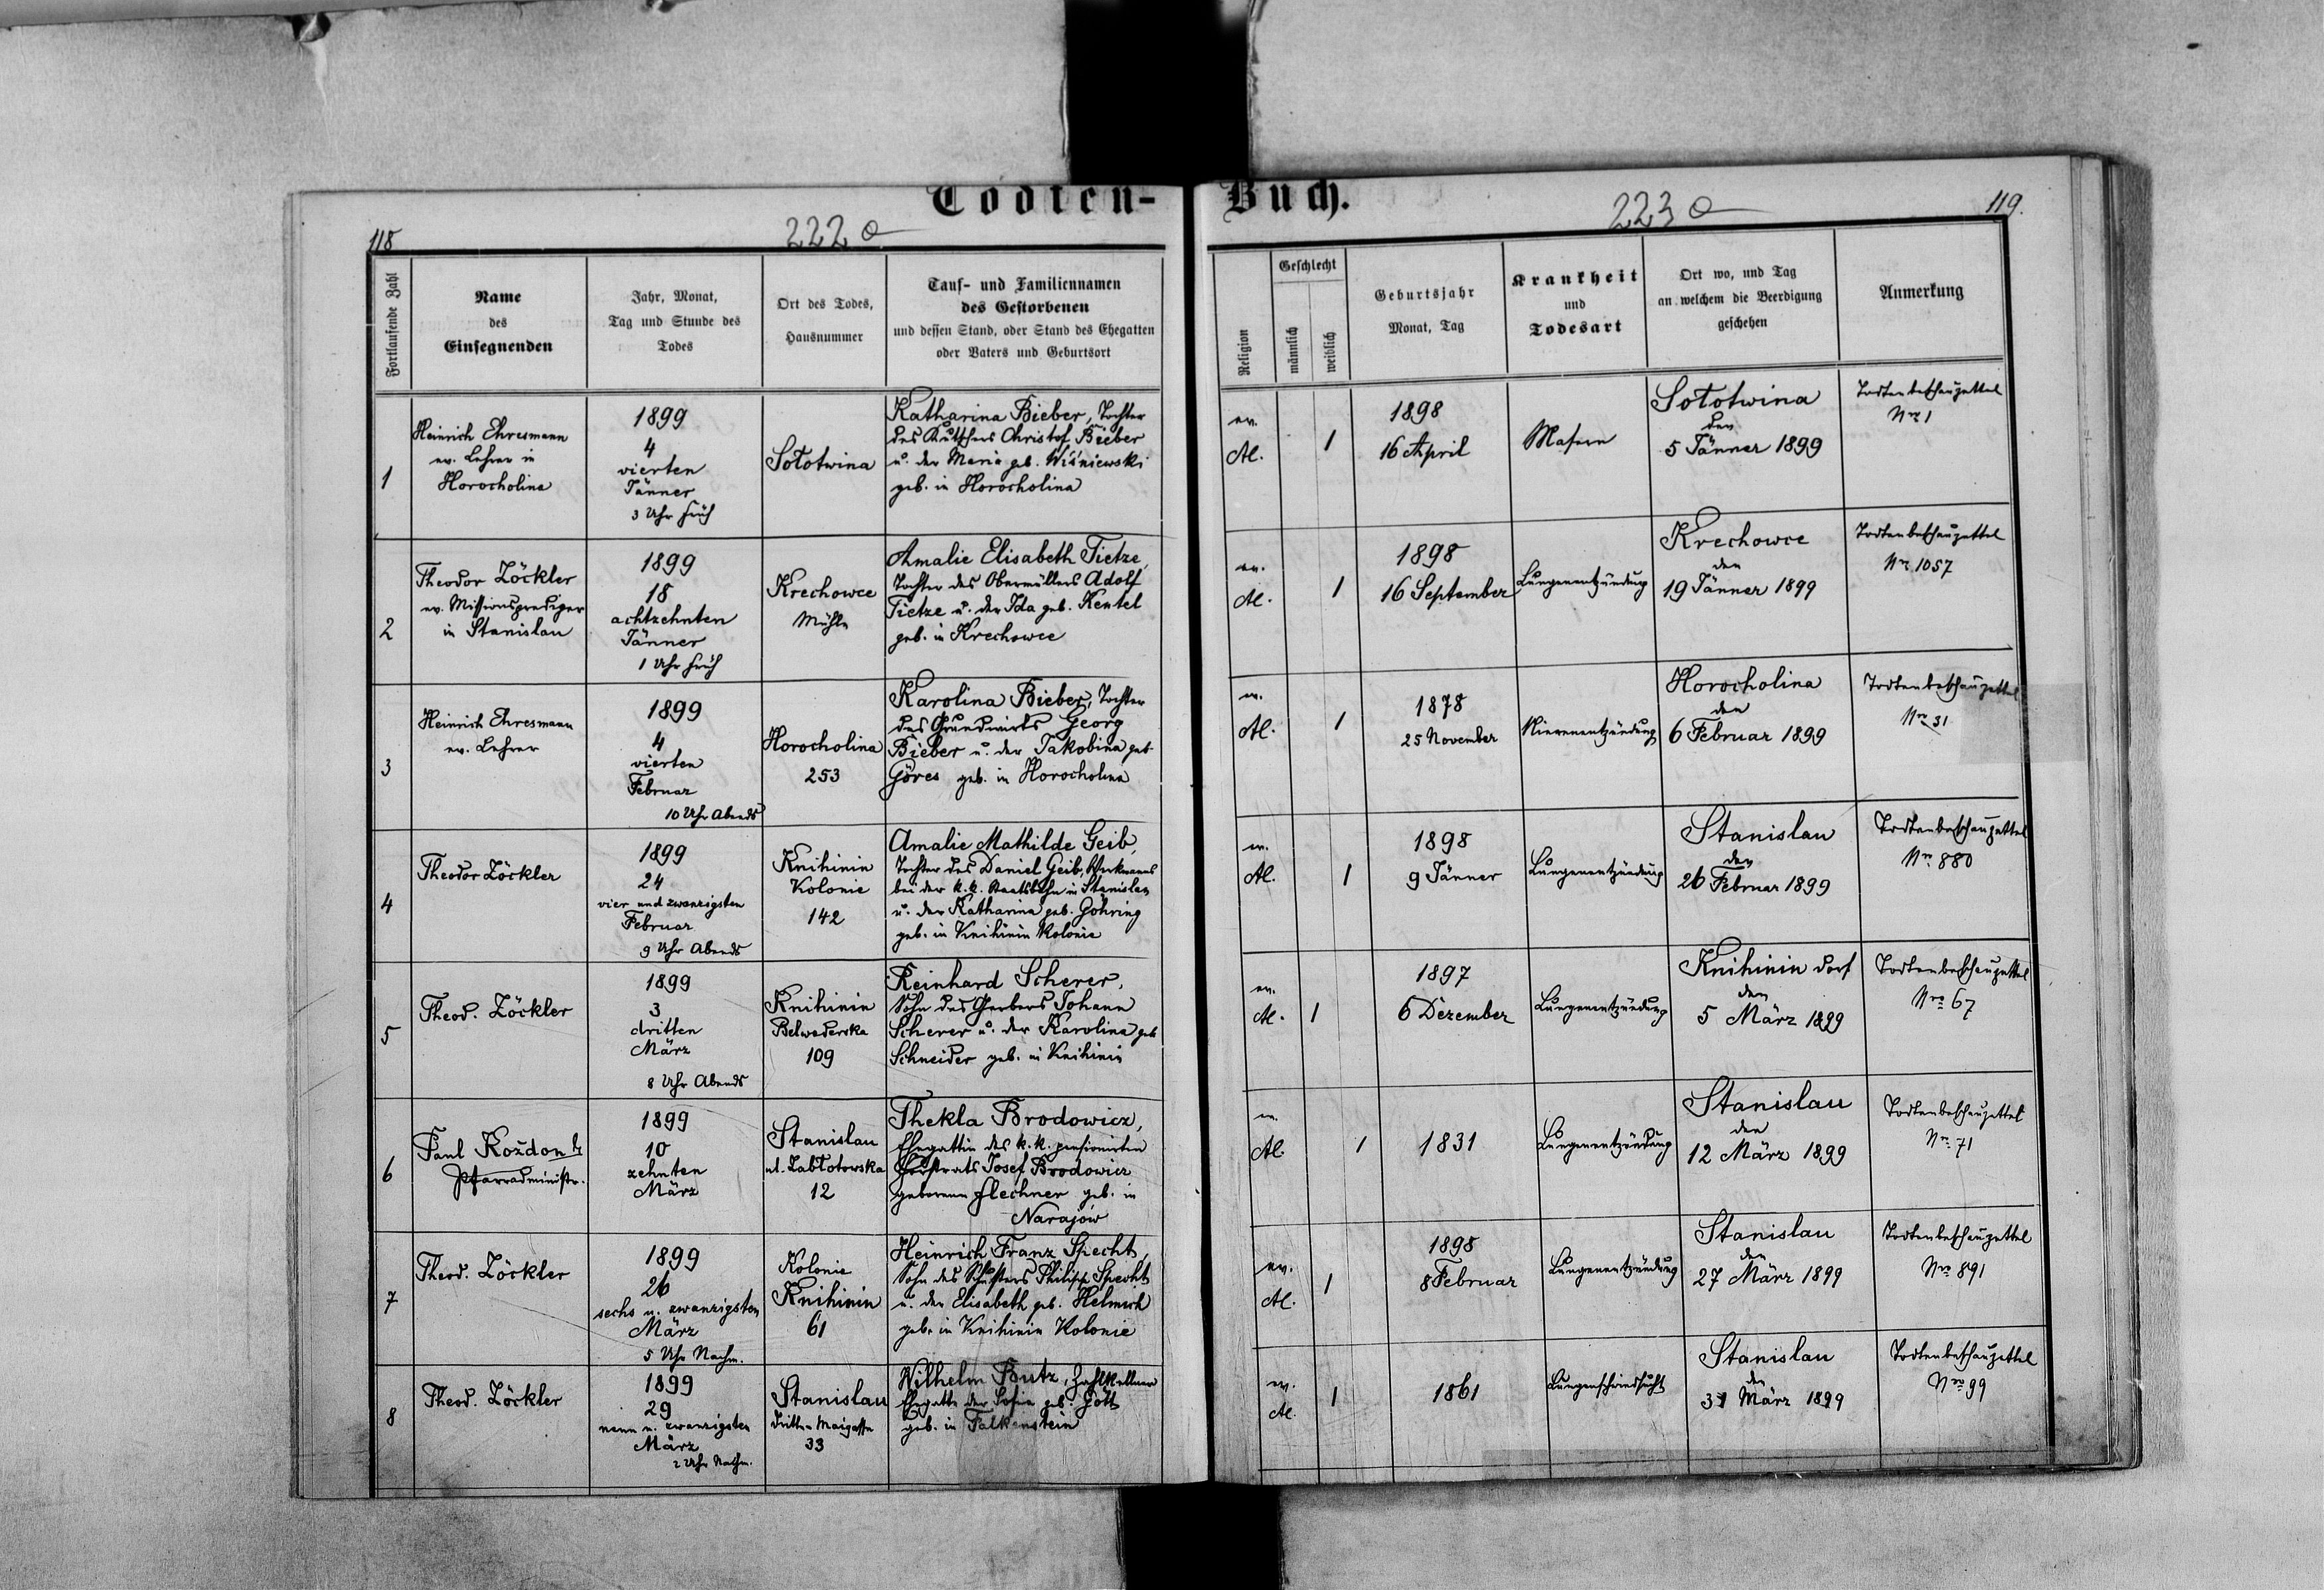 Todten- Buch.
118
222
223
119.
Fortlaufende Zahl
Name
des
Einsegnenden
Jahr, Monat,
Tag und Stunde des
Todes
Ort des Todes,
Hausnummer
Tauf- und Familiennamen
des Gestorbenen
und dessen Stand, oder Stand des Ehegatten
oder Vaters und Geburtsort
Religion
Geschlecht
männlich
weiblich
Geburtsjahr
Monat, Tag
Krankheit
und
Todesart
Ort wo, und Tag
an welchem die Beerdigung
geschehen
Anmerkung
1
Heinrich Ehresmann
ev. Lehrer in
Horocholina
1899
4
vierten
Jänner
3 Uhr früh
Sołotwina
Katharina Bieber, Tochter
des Kutschers Christof Bieber
u. der Maria geb. Wiśniewski
geb. in Horocholina
ev.
Al.
1
1898
16 April
Masern
Sołotwina
den
5 Jänner 1899
Todtenbeschauzettel
Nro 1
2
Theodor Zöckler
ev. Missionsprediger
in Stanislau
1899
18
achtzehnten
Jänner
1 Uhr früh
Krechowce
Mühle
Amalie Elisabeth Tietze,
Tochter des Obermüllers Adolf
Tietze u. der Ida geb. Kentel
geb. in Krechowce
ev.
Al.
1
1898
16 September
Lungenentzündung
Krechowce
den
19 Jänner 1899
Todtenbeschauzettel
Nro 1057
3
Heinrich Ehresmann
ev. Lehrer
1899
4
vierten
Februar
10 Uhr Abends
Horocholina
253
Karolina Bieber, Tochter
des Grundwirts Georg
Bieber u. der Jakobina geb.
Göres geb. in Horocholina
ev.
Al.
1
1878
25 November
Nierenentzündung
Horocholina
den
6 Februar 1899
Todtenbeschauzettel
Nro 31
4
Theodor Zöckler
1899
24
vier und zwanzigsten
Februar
9 Uhr Abends
Knihinin
Kolonie
142
Amalie Mathilde Geib,
Tochter des Daniel Geib, Werkmanns
bei der k.k. Staatsbahn in Stanislau
u. der Katharina geb. Göhring
geb. in Knihinin Kolonie
ev.
Al.
1
1898
9 Jänner
Lungenentzündung
Stanislau
den
26 Februar 1899
Todtenbeschauzettel
Nro 880
5
Theod. Zöckler
1899
3
dritten
März
8 Uhr Abends
Knihinin
Belwederska
109
Reinhard Scherer,
Sohn des Gerbers Johann
Scherer u. der Karolina geb
Schneider geb. in Knihinin
ev.
Al.
1
1897
6 Dezember
Lungenentzündung
Knihinin dorf
den
5 März 1899
Todtenbeschauzettel
Nro 67
6
Paul Kożdoń
Pfarradministr.
1899
10
zehnten
März
Stanislau
ul. Zabłotowska
12
Thekla Brodowicz,
Ehegattin des k.k. pensionirten
Josef Brodowicz
geborenen Flechner geb. in
Narajów
ev.
Al.
1
1831
Lungenentzündung
Stanislau
den
12 März 1899
Todtenbeschauzettel
Nro 71
7
Theod. Zöckler
1899
26
sechs u. zwanzigsten
März
5 Uhr Nachm.
Kolonie
Knihinin
61
Heinrich Franz Specht,
Sohn des Schusters Philipp Specht
u. der Elisabeth geb. Helmich
geb. in Knihinin Kolonie
ev.
Al.
1
1898
8 Februar
Lungenentzündung
Stanislau
den
27 März 1899
Todtenbeschauzettel
Nro 891
8
Theod. Zöckler
1899
29
neun u. zwanzigsten
März
2 Uhr Nachm.
Stanislau
dritte Maigasse
33
Wilhelm Butz, Zahlkellner
Ehegatte der Sofia geb. Gött
geb. in Falkenstein
ev.
Al.
1
1861
Lungenschwindsucht
Stanislau
den
31 März 1899
Todtenbeschauzettel
Nro 99